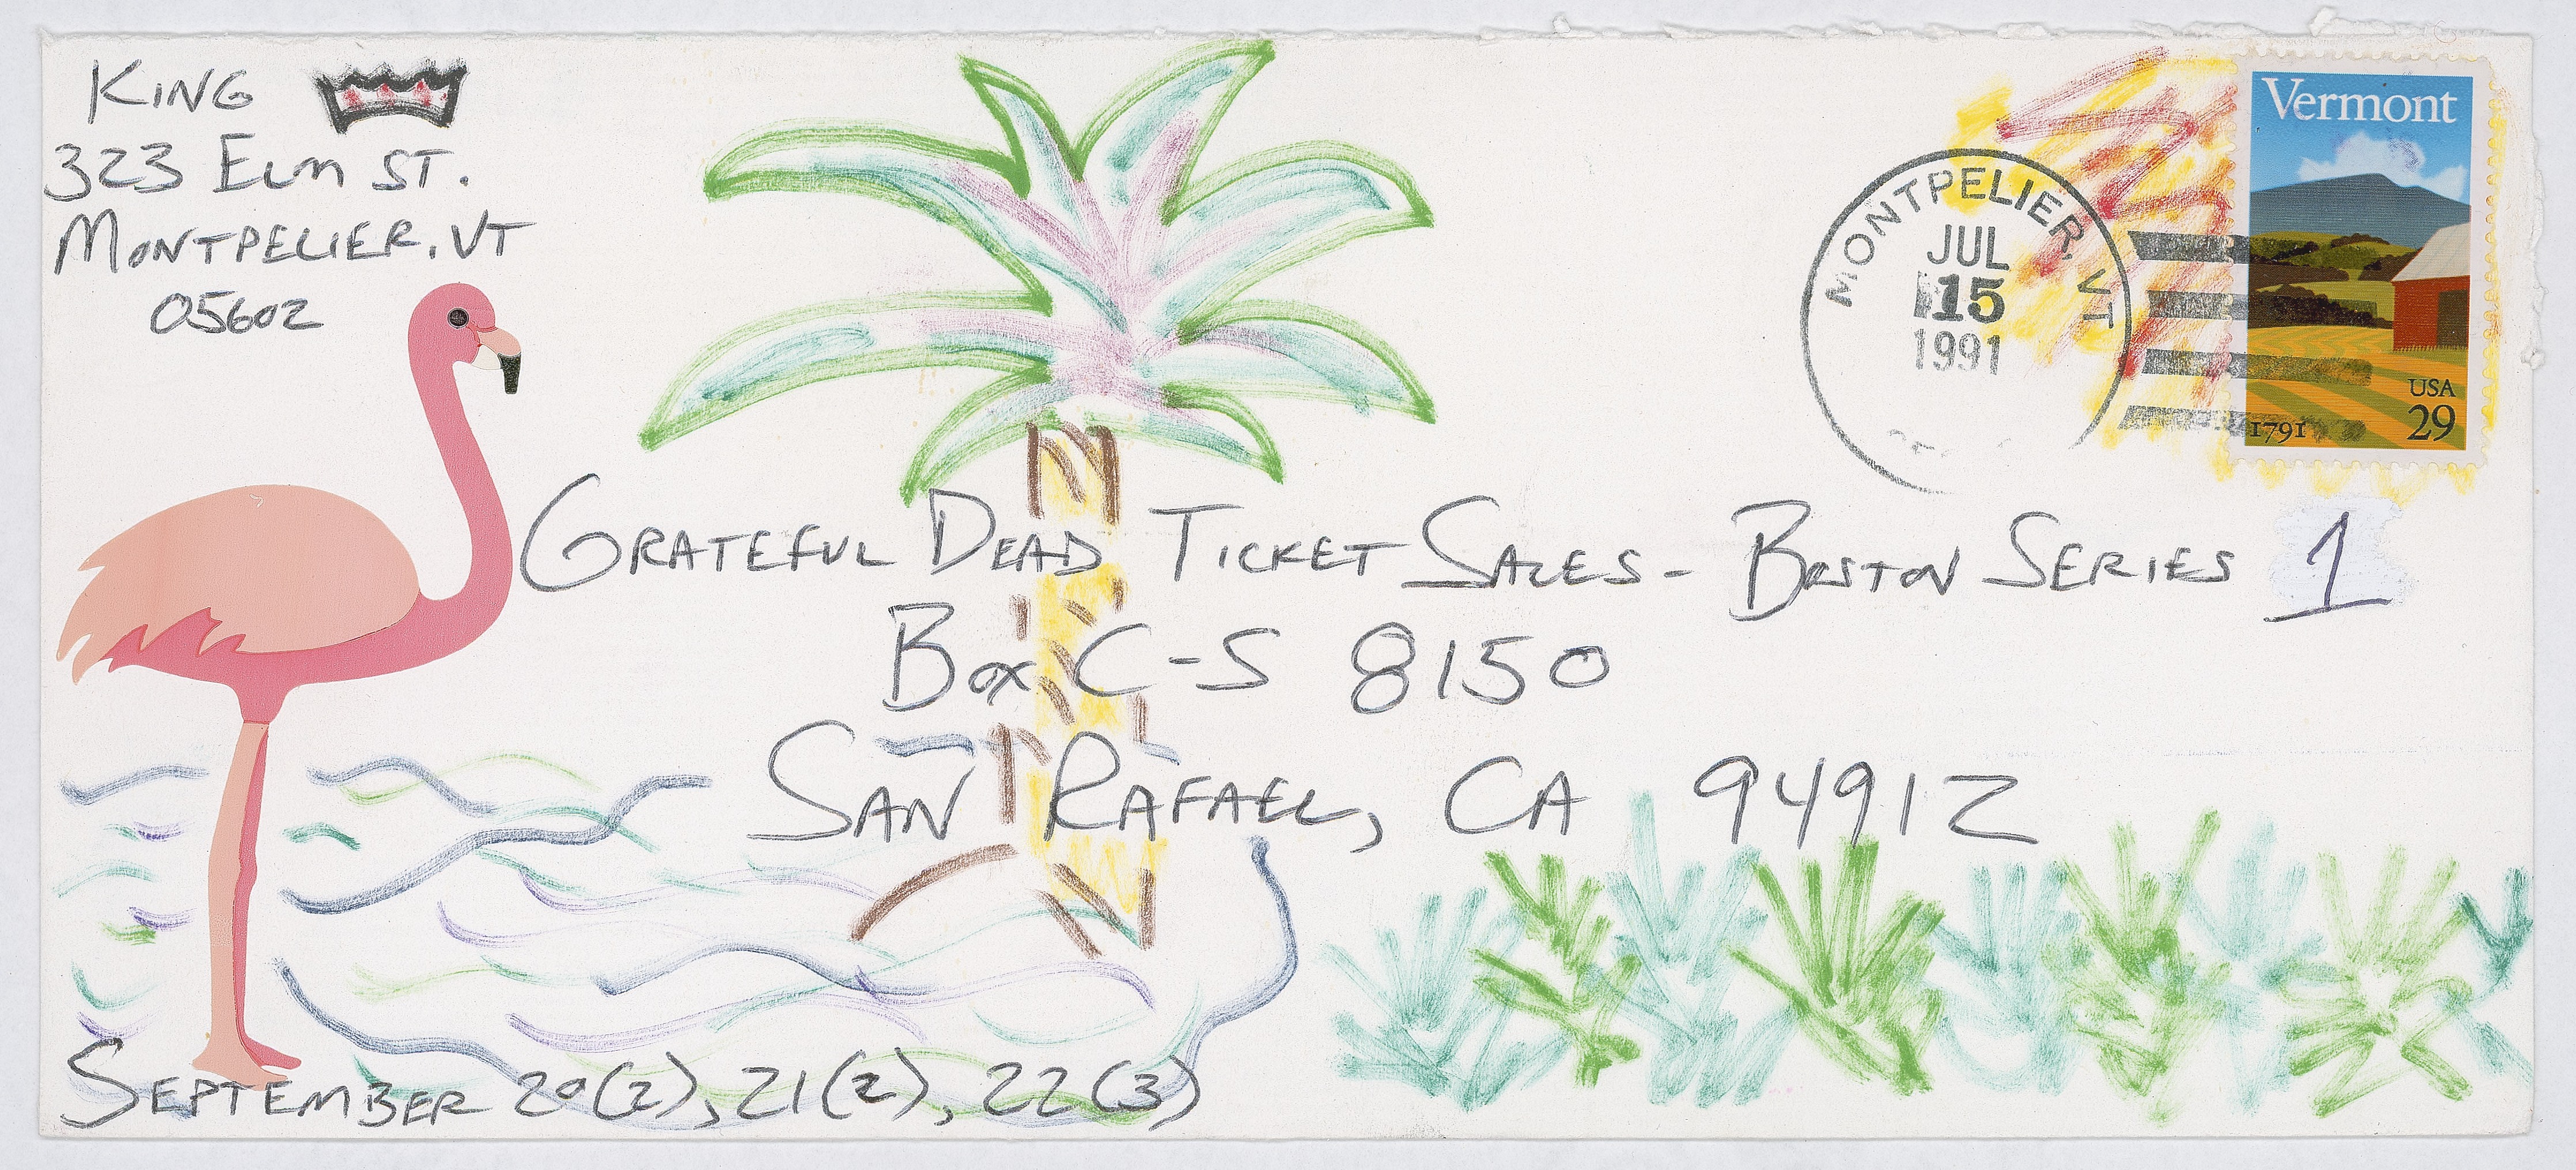 KING
323 ELM ST.
MONTPELIER, VT
05602
Vermont
USA
29
1791
MONTPELIER, VT
JUL
15
1991
GRATEFUL DEAD TICKET SALES - BOSTON SERIES 1
BOX C-S 8150
SAN RAFAEL, CA 94912
SEPTEMBER 20(2), 21(2), 22(3)